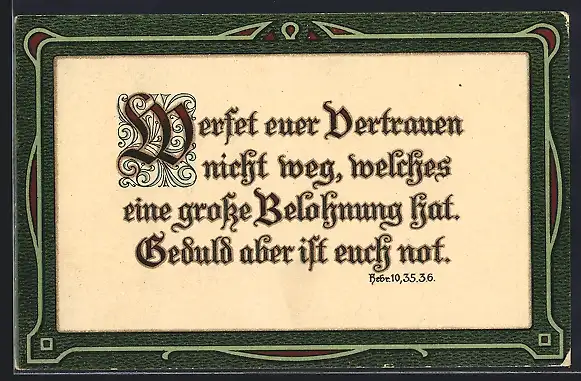 Werfet euer Vertrauen
nicht weg, welches
eine große Belohnung hat.
Geduld aber ist euch not.
Hebr. 10, 35. 36.